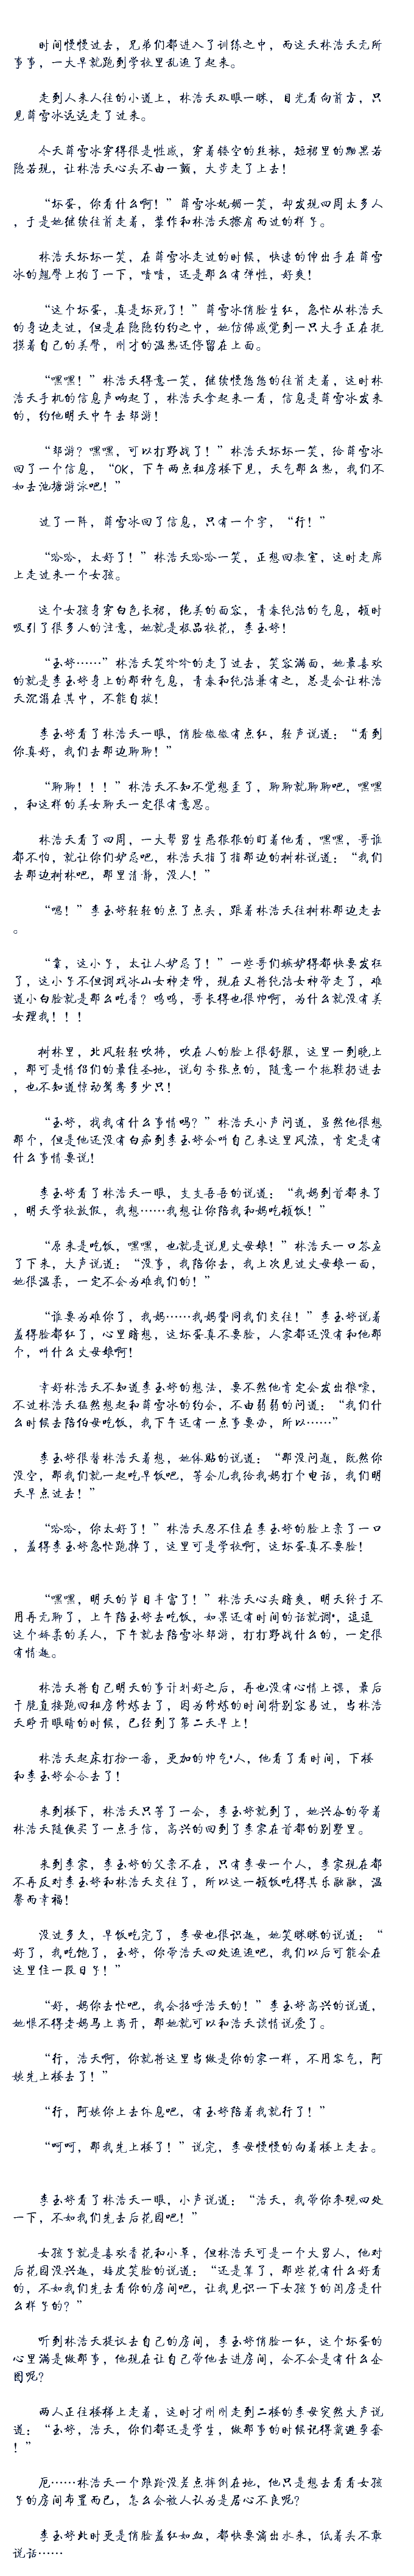 时间慢慢过去，兄弟们都进入了训练之中，而这天林浩天无所
事事，一大早就跑到学校里乱逛了起来。
走到人来人往的小道上，林浩天双眼一眯，目光看向前方，只
见薛雪冰远远走了过来。
今天薛雪冰穿得很是性感，穿着镂空的丝袜，短裙里的黝黑若
隐若现，让林浩天心头不由一颤，大步走了上去！
“坏蛋，你看什么啊！”薛雪冰妩媚一笑，却发现四周太多人
，于是她继续往前走着，装作和林浩天擦肩而过的样子。
林浩天坏坏一笑，在薛雪冰走过的时候，快速的伸出手在薛雪
冰的翘臀上拍了一下，啧啧，还是那么有弹性，好爽！
“这个坏蛋，真是坏死了！”薛雪冰俏脸生红，急忙从林浩天
的身边走过，但是在隐隐约约之中，她仿佛感觉到一只大手正在抚
摸着自己的美臀，刚才的温热还停留在上面。
“嘿嘿！”林浩天得意一笑，继续慢悠悠的往前走着，这时林
浩天手机的信息声响起了，林浩天拿起来一看，信息是薛雪冰发来
的，约他明天中午去郊游！
“郊游？嘿嘿，可以打野战了！”林浩天坏坏一笑，给薛雪冰
回了一个信息，“OK，下午两点租房楼下见，天气那么热，我们不
如去池塘游泳吧！”
过了一阵，薛雪冰回了信息，只有一个字，“行！”
“哈哈，太好了！”林浩天哈哈一笑，正想回教室，这时走廊
上走过来一个女孩。
这个女孩身穿白色长裙，绝美的面容，青春纯洁的气息，顿时
吸引了很多人的注意，她就是极品校花，李玉婷！
“玉婷……”林浩天笑吟吟的走了过去，笑容满面，她最喜欢
的就是李玉婷身上的那种气息，青春和纯洁兼有之，总是会让林浩
天沉溺在其中，不能自拔！
李玉婷看了林浩天一眼，俏脸微微有点红，轻声说道：“看到
你真好，我们去那边聊聊！”
“聊聊！！！”林浩天不知不觉想歪了，聊聊就聊聊吧，嘿嘿
，和这样的美女聊天一定很有意思。
林浩天看了四周，一大帮男生恶狠狠的盯着他看，嘿嘿，哥谁
都不怕，就让你们妒忌吧，林浩天指了指那边的树林说道：“我们
去那边树林吧，那里清静，没人！”
“嗯！”李玉婷轻轻的点了点头，跟着林浩天往树林那边走去
。
“靠，这小子，太让人妒忌了！”一些哥们嫉妒得都快要发狂
了，这小子不但调戏冰山女神老师，现在又将纯洁女神带走了，难
道小白脸就是那么吃香？呜呜，哥长得也很帅啊，为什么就没有美
女理我！！！
树林里，北风轻轻吹拂，吹在人的脸上很舒服，这里一到晚上
，那可是情侣们的最佳圣地，说句夸张点的，随意一个拖鞋扔进去
，也不知道惊动鸳鸯多少只！
“玉婷，找我有什么事情吗？”林浩天小声问道，虽然他很想
那个，但是他还没有白痴到李玉婷会叫自己来这里风流，肯定是有
什么事情要说！
李玉婷看了林浩天一眼，支支吾吾的说道：“我妈到首都来了
，明天学校放假，我想……我想让你陪我和妈吃顿饭！”
“原来是吃饭，嘿嘿，也就是说见丈母娘！”林浩天一口答应
了下来，大声说道：“没事，我陪你去，我上次见过丈母娘一面，
她很温柔，一定不会为难我们的！”
“谁要为难你了，我妈……我妈赞同我们交往！”李玉婷说着
羞得脸都红了，心里暗想，这坏蛋真不要脸，人家都还没有和他那
个，叫什么丈母娘啊！
幸好林浩天不知道李玉婷的想法，要不然他肯定会发出狼嚎，
不过林浩天猛然想起和薛雪冰的约会，不由弱弱的问道：“我们什
么时候去陪伯母吃饭，我下午还有一点事要办，所以……”
李玉婷很替林浩天着想，她体贴的说道：“那没问题，既然你
没空，那我们就一起吃早饭吧，等会儿我给我妈打个电话，我们明
天早点过去！”
“哈哈，你太好了！”林浩天忍不住在李玉婷的脸上亲了一口
，羞得李玉婷急忙跑掉了，这里可是学校啊，这坏蛋真不要脸！
“嘿嘿，明天的节目丰富了！”林浩天心头暗爽，明天终于不
用再无聊了，上午陪玉婷去吃饭，如果还有时间的话就调*，逗逗
这个娇柔的美人，下午就去陪雪冰郊游，打打野战什么的，一定很
有情趣。
林浩天将自己明天的事计划好之后，再也没有心情上课，最后
干脆直接跑回租房修炼去了，因为修炼的时间特别容易过，当林浩
天睁开眼睛的时候，已经到了第二天早上！
林浩天起床打扮一番，更加的帅气*人，他看了看时间，下楼
和李玉婷会合去了！
来到楼下，林浩天只等了一会，李玉婷就到了，她兴奋的带着
林浩天随便买了一点手信，高兴的回到了李家在首都的别墅里。
来到李家，李玉婷的父亲不在，只有李母一个人，李家现在都
不再反对李玉婷和林浩天交往了，所以这一顿饭吃得其乐融融，温
馨而幸福！
没过多久，早饭吃完了，李母也很识趣，她笑眯眯的说道：“
好了，我吃饱了，玉婷，你带浩天四处逛逛吧，我们以后可能会在
这里住一段日子！”
“好，妈你去忙吧，我会招呼浩天的！”李玉婷高兴的说道，
她恨不得老妈马上离开，那她就可以和浩天谈情说爱了。
“行，浩天啊，你就将这里当做是你的家一样，不用客气，阿
姨先上楼去了！”
“行，阿姨你上去休息吧，有玉婷陪着我就行了！”
“呵呵，那我先上楼了！”说完，李母慢慢的向着楼上走去。
李玉婷看了林浩天一眼，小声说道：“浩天，我带你参观四处
一下，不如我们先去后花园吧！”
女孩子就是喜欢香花和小草，但林浩天可是一个大男人，他对
后花园没兴趣，嬉皮笑脸的说道：“还是算了，那些花有什么好看
的，不如我们先去看你的房间吧，让我见识一下女孩子的闺房是什
么样子的？”
听到林浩天提议去自己的房间，李玉婷俏脸一红，这个坏蛋的
心里满是做那事，他现在让自己带他去进房间，会不会是有什么企
图呢？
两人正往楼梯上走着，这时才刚刚走到二楼的李母突然大声说
道：“玉婷，浩天，你们都还是学生，做那事的时候记得戴避孕套
！”
厄……林浩天一个踉跄没差点摔倒在地，他只是想去看看女孩
子的房间布置而已，怎么会被人认为是居心不良呢？
李玉婷此时更是俏脸羞红如血，都快要滴出水来，低着头不敢
说话……